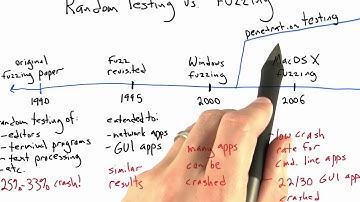 Random Testing vs. Fuzzing
penetration testing
original
fuzzing paper
fuzz
revisited
Windows
fuzzing
MacOS X
fuzzing
1990
1995
2000
2006
random testing of:
- editors
- terminal programs
- text processing
- etc.
25%-33% crash!
extended to:
- network apps
- GUI apps
similar
results
many apps
can be
crashed
low crash
rate for
cmd. line apps
22/30 GUI
apps
crashed